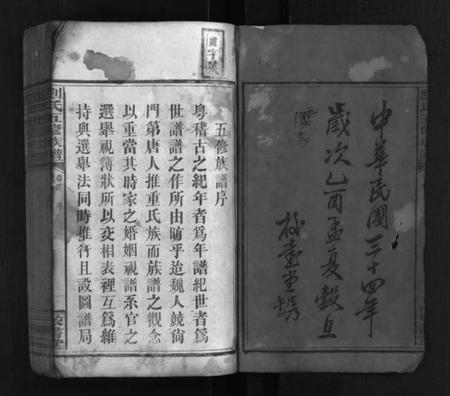 中華民國三十四年
歲次乙酉孟夏穀旦
校書堂鐫
五修族譜序
粵稽古之紀年者爲年譜紀世者爲
世譜譜之作所由昉乎迨魏人競尙
門第唐人推重氏族而族譜之觀念
以重當其時家之婚姻視譜系官之
選舉視簿狀所以交相表裡互爲維
持與選舉法同時推行且設圖譜局
劉氏五修族譜
卷首 序